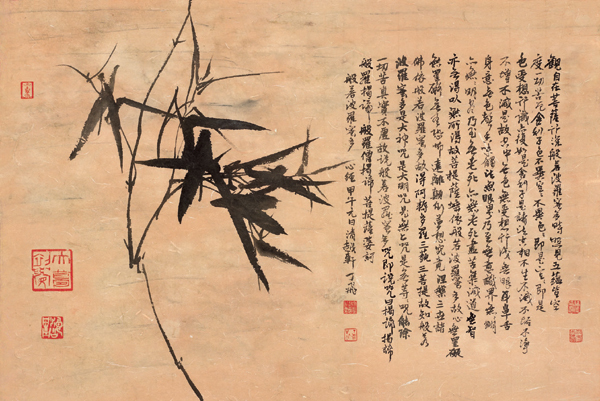 觀自在菩薩行深般若波羅蜜多時照見五蘊皆空
度一切苦厄舍利子色不異空空不異色色即是空空即是
色受想行識亦復如是舍利子是諸法空相不生不滅不垢不淨
不增不減是故空中無色無受想行識無眼耳鼻舌
身意無色聲香味觸法無眼界乃至無意識界無無明
亦無無明盡乃至無老死亦無老死盡無苦集滅道無智
亦無得以無所得故菩提薩埵依般若波羅蜜多故心無罣礙
無罣礙故無有恐怖遠離顛倒夢想究竟涅槃三世諸
佛依般若波羅蜜多故得阿耨多羅三藐三菩提故知般若
波羅蜜多是大神咒是大明咒是無上咒是無等等咒能除
一切苦真實不虛故說般若波羅蜜多咒即說咒曰揭諦揭諦
般羅揭諦般羅僧揭諦菩提薩婆訶
般若波羅蜜多心經甲午元日清軒丁